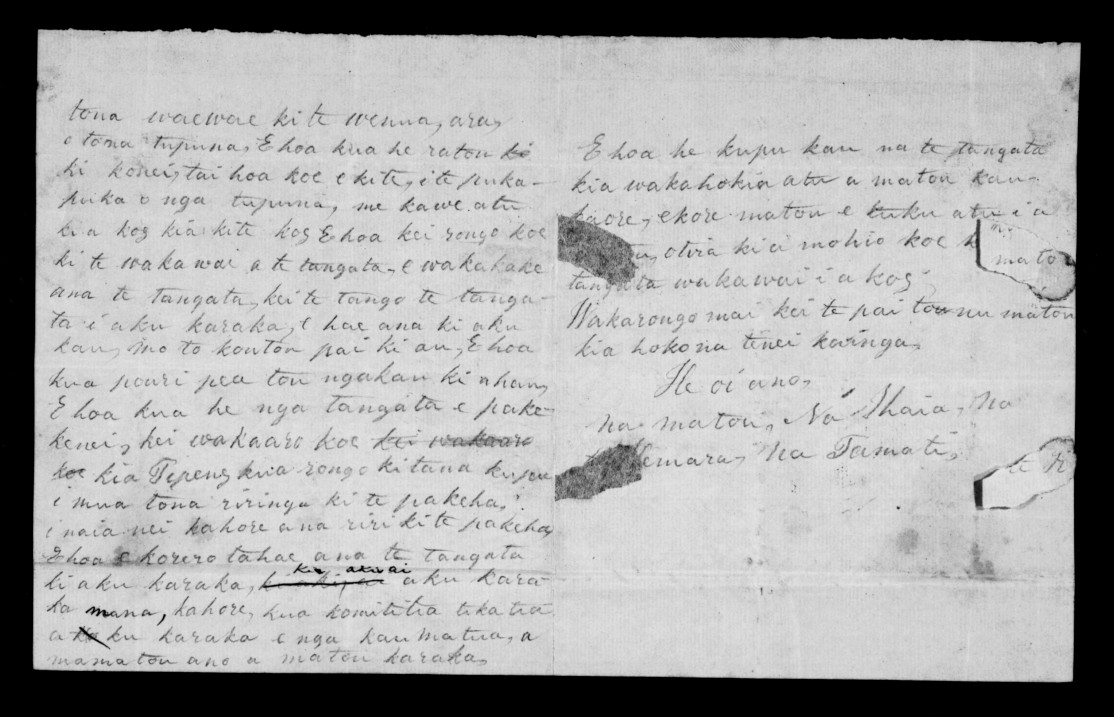 tona waewae ki te wenua, ara,
o tona tupuna, E hoa kua he raton ki
ki konei, tai hoa koe e kite, i te puka-
puka o nga tupuna, me kawe atu
ki a koe, kia kite koe, E hoa kei rongo koe
ki te wakawai a te tangata, e wakahake
ana te tangata, kei te tango te tanga-
ta i aku karaka, e hae ana ki aku
kau, mo to koutou pai ki au, E hoa
kua pouri pea tou ngakau ki ahau,
E hoa kua he nga tangata e pake-
kenei, kei wakaaro koe kei wakaaro
koe kia Tipene, kua rongo ki tana kupu
i mua tona riringa ki te pakeha,
i naia nei kahore ana riri ki te pakeha,
E hoa e korero tahae ana te tangata
ki aku karaka, aku kara-
ka mana, kahore, kua komititia tikatia
a ku karaka e nga kaumatua, a
mamatou ano a matou karaka,
E hoa he kupu kau na te tangata
kia wakahokia atu a matou kau,
kaore, ekore matou e tuku atu i a
otira kia mohio koe matou
tangata wakawai i a koe,
Wakarongo mai kei te pai tonu matou
kia hokona tenei kainga,
He oi ano,
na matou, Na Ihaia, Na
Na Tamati, te